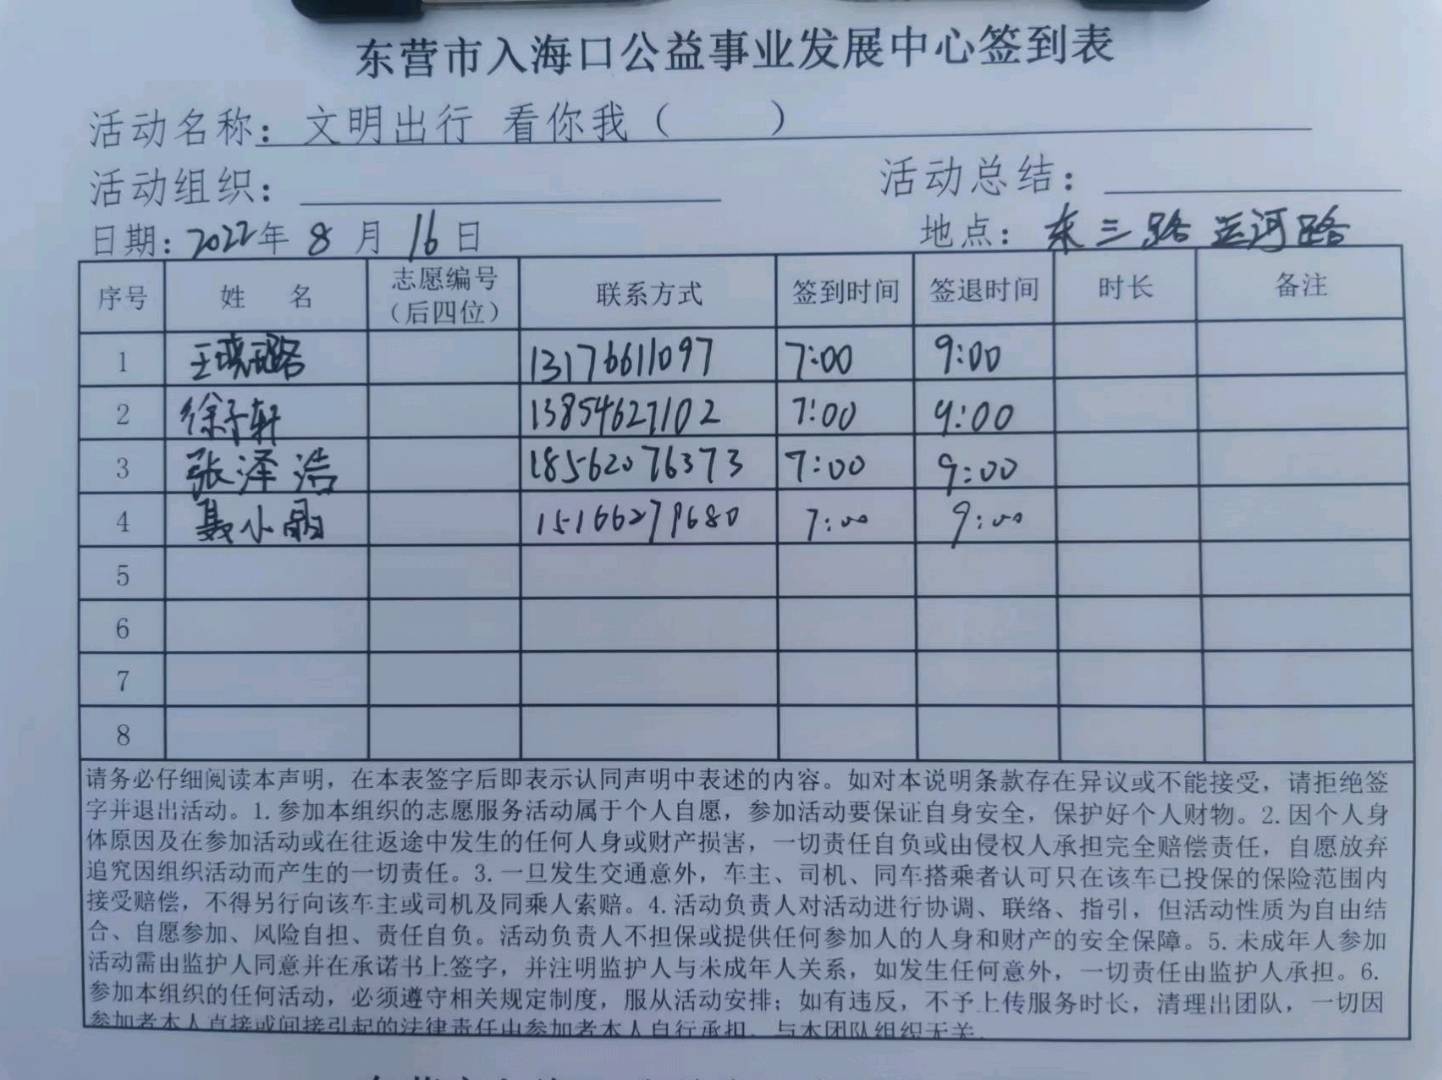 东营市入海口公益事业发展中心签到表
活动名称：文明出行 看你我（ ）
活动组织： 活动总结：
日期：2022年 8 月 16 日 地点：东三路 运河路
序号 姓 名 志愿编号（后四位） 联系方式 签到时间 签退时间 时长 备注
1 王 13176611097 7:00 9:00
2 徐子轩 13854627102 7:00 9:00
3 张泽浩 18562076373 7:00 9:00
4 聂小 15166279680 7:00 9:00
5
6
7
8
请务必仔细阅读本声明，在本表签字后即表示认同声明中表述的内容。如对本说明条款存在异议或不能接受，请拒绝签
字并退出活动。1.参加本组织的志愿服务活动属于个人自愿，参加活动要保证自身安全，保护好个人财物。2.因个人身
体原因及在参加活动或在往返途中发生的任何人身或财产损害，一切责任自负或由侵权人承担完全赔偿责任，自愿放弃
追究因组织活动而产生的一切责任。3.一旦发生交通意外，车主、司机、同车搭乘者认可只在该车已投保的保险范围内
接受赔偿，不得另行向该车主或司机及同乘人索赔。4.活动负责人对活动进行协调、联络、指引，但活动性质为自由结
合、自愿参加、风险自担、责任自负。活动负责人不担保或提供任何参加人的人身和财产的安全保障。5.未成年人参加
活动需由监护人同意并在承诺书上签字，并注明监护人与未成年人关系，如发生任何意外，一切责任由监护人承担。6.
参加本组织的任何活动，必须遵守相关规定制度，服从活动安排；如有违反，不予上传服务时长，清理出团队，一切因
参加者本人直接或间接引起的法律责任由参加者本人自行承担，与本团队组织无关。